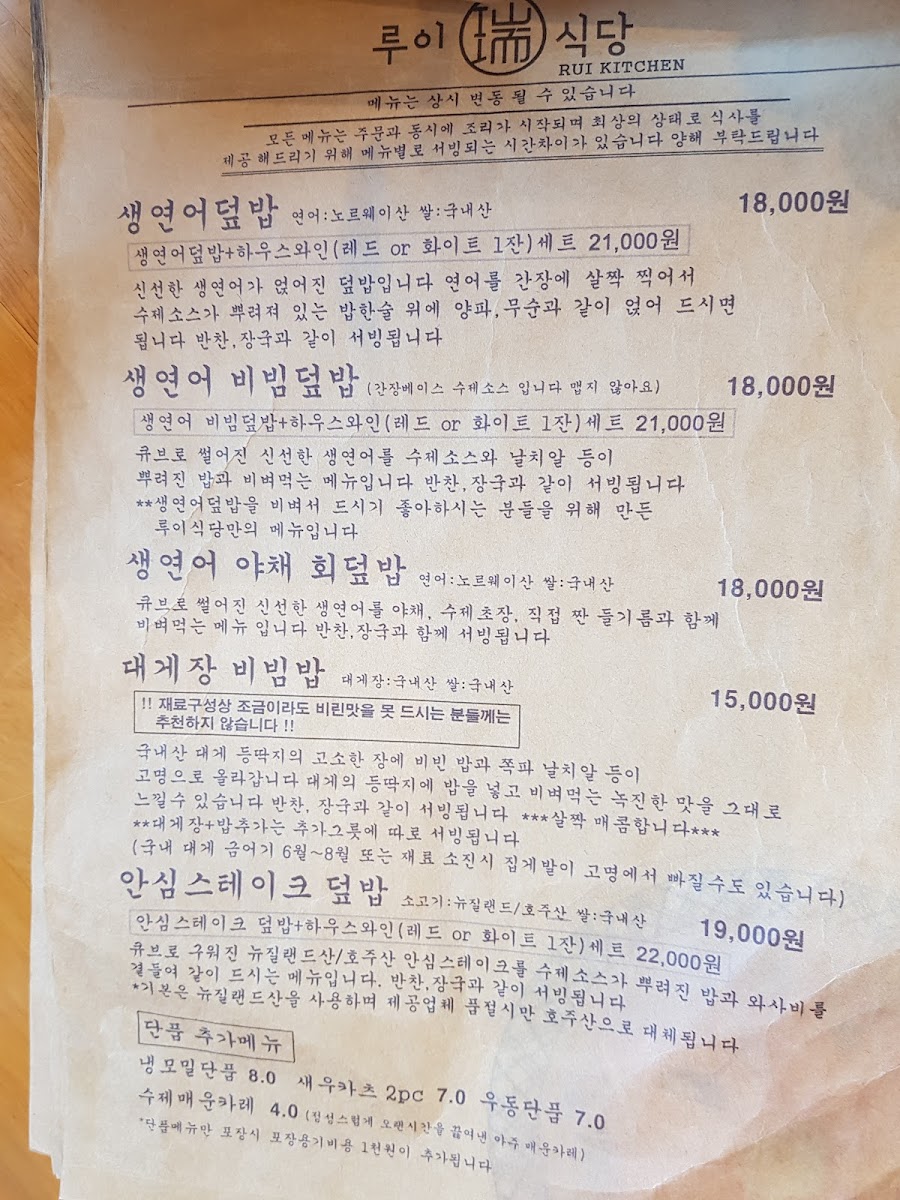 루이 瑞 식당
RUI KITCHEN
메뉴는 상시 변동 될 수 있습니다
모든 메뉴는 주문과 동시에 조리가 시작되며 최상의 상태로 식사를
제공 해드리기 위해 메뉴별로 서빙되는 시간차이가 있습니다 양해 부탁드립니다
생연어덮밥 연어:노르웨이산 쌀:국내산 18,000원
생연어덮밥+하우스와인(레드 or 화이트 1잔)세트 21,000원
신선한 생연어가 얹어진 덮밥입니다 연어를 간장에 살짝 찍어서
수제소스가 뿌려져 있는 밥한술 위에 양파,무순과 같이 얹어 드시면
됩니다 반찬,장국과 같이 서빙됩니다
생연어 비빔덮밥 (간장베이스 수제소스 입니다 맵지 않아요) 18,000원
생연어 비빔덮밥+하우스와인(레드 or 화이트 1잔)세트 21,000원
큐브로 썰어진 신선한 생연어를 수제소스와 날치알 등이
뿌려진 밥과 비벼먹는 메뉴입니다 반찬,장국과 같이 서빙됩니다
**생연어덮밥을 비벼서 드시기 좋아하시는 분들을 위해 만든
루이식당만의 메뉴입니다
생연어 야채 회덮밥 연어:노르웨이산 쌀:국내산 18,000원
큐브로 썰어진 신선한 생연어를 야채, 수제초장, 직접 짠 들기름과 함께
비벼먹는 메뉴 입니다 반찬,장국과 함께 서빙됩니다
대게장 비빔밥 대게장:국내산 쌀:국내산 15,000원
!! 재료구성상 조금이라도 비린맛을 못 드시는 분들께는
추천하지 않습니다 !!
국내산 대게 등딱지의 고소한 장에 비빈 밥과 쪽파 날치알 등이
고명으로 올라갑니다 대게의 등딱지에 밥을 넣고 비벼먹는 녹진한 맛을 그대로
느낄수 있습니다 반찬, 장국과 같이 서빙됩니다 ***살짝 매콤합니다***
**대게장+밥추가는 추가그릇에 따로 서빙됩니다
(국내 대게 금어기 6월~8월 또는 재료 소진시 집게발이 고명에서 빠질수도 있습니다)
안심스테이크 덮밥 소고기:뉴질랜드/호주산 쌀:국내산 19,000원
안심스테이크 덮밥+하우스와인(레드 or 화이트 1잔)세트 22,000원
큐브로 구워진 뉴질랜드산/호주산 안심스테이크를 수제소스가 뿌려진 밥과 와사비를
곁들여 같이 드시는 메뉴입니다. 반찬,장국과 같이 서빙됩니다
*기본은 뉴질랜드산을 사용하며 제공업체 품절시만 호주산으로 대체됩니다
단품 추가메뉴
냉모밀단품 8.0 새우카츠 2pc 7.0 우동단품 7.0
수제매운카레 4.0 (정성스럽게 오랜시간을 끓여낸 아주 매운카레)
*단품메뉴만 포장시 포장용기비용 1천원이 추가됩니다